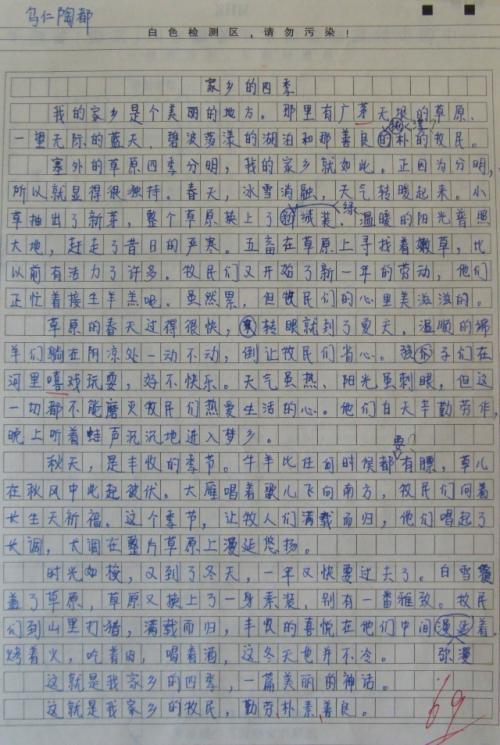 乌仁陶都
白色检测区，请勿污染！
家乡的四季
我的家乡是个美丽的地方。那里有广茅天垠的草原、
一望无际的蓝天、碧波荡漾的湖泊和那善良的朴的牧民。
塞外的草原四季分明，我的家乡就如此。正因为分明，
所以就显得很独特。春天，冰雪消融，天气转暖起来。小
草抽出了新芽，整个草原换上了绿城装。温暖的阳光普照
大地，赶走了昔日的严寒。五畜在草原上寻找着嫩草，比
以前有活力了许多。牧民们又开始了新一年的劳动，他们
正忙着接生羊羔呢。虽然累，但牧民们的心里美滋滋的。
草原的春天过得很快，转眼就到了夏天。温顺的绵
羊们躺在阴凉处一动不动，倒让牧民们省心。孩子们在
河里嘻戏玩耍，好不快乐。天气虽热、阳光虽刺眼，但这
一切都不能磨灭牧民们热爱生活的心。他们白天辛勤劳作，
晚上听着蛙声沉沉地进入梦乡。
秋天，是丰收的季节。牛羊比任何时候都有膘，草儿
在秋风中此起彼伏。大雁唱着歌儿飞向南方，牧民们向着
长生天祈福。这个季节，让牧人们满载而归，他们唱起了
长调，长调在整片草原上漫延悠扬。
时光如梭，又到了冬天，一年又快要过去了。白雪覆
盖了草原，草原又换上了一身素装，别有一番雅致。牧民
们到山里打猎，满载而归，丰收的喜悦在他们中间漫延着。
烤着火，吃着肉，喝着酒，这冬天也并不冷。
弥漫
这就是我家乡的四季，一篇美丽的神话。
这就是我家乡的牧民，勤劳、朴素、善良。
69